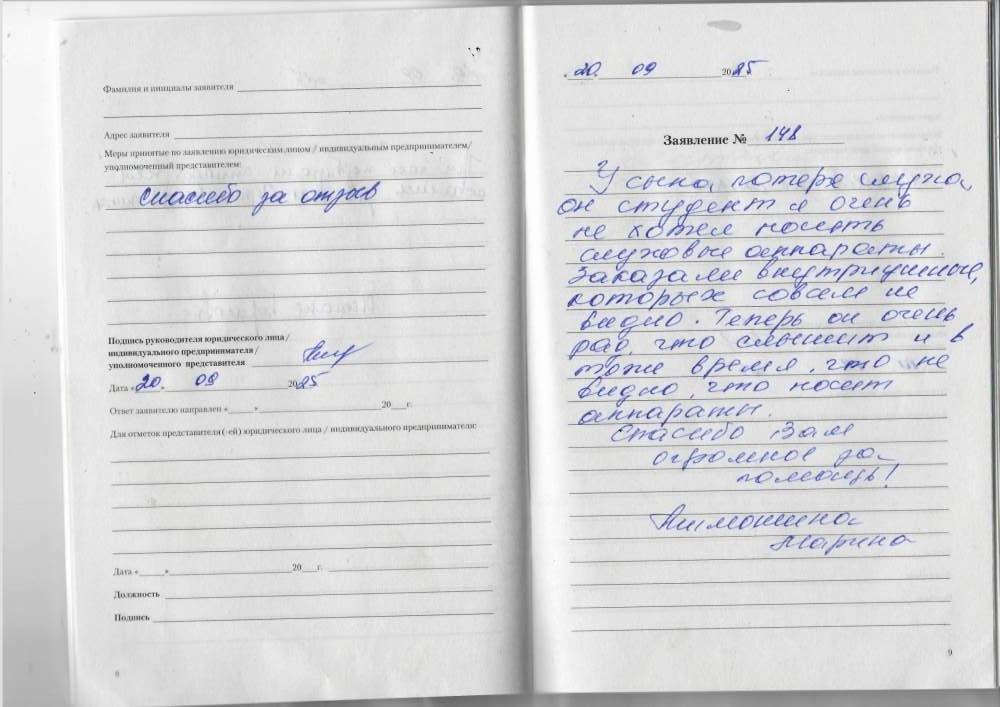 Фамилия и инициалы заявителя
Адрес заявителя
Меры принятые по заявлению юридическим лицом / индивидуальным предпринимателем/
уполномоченный представителем:
Спасибо за отзыв
Подпись руководителя юридического лица/
индивидуального предпринимателя/
уполномоченного представителя
Дата «20» 09 2025
Ответ заявителю направлен «___» 20___г.
Для отметок представителя (-ей) юридического лица / индивидуального предпринимателя:
Дата «___» 20___г.
Должность
Подпись
8
«20» 09 2025
Заявление № 148
У сына потеря слуха,
он студент и очень
не хотел носить
слуховые аппараты.
Заказали внутриушные,
которых совсем не
видно. Теперь он очень
рад, что слышит и в
тоже время, что не
видно, что носит
аппараты.
Спасибо Вам
огромное за
помощь!
Марина
9